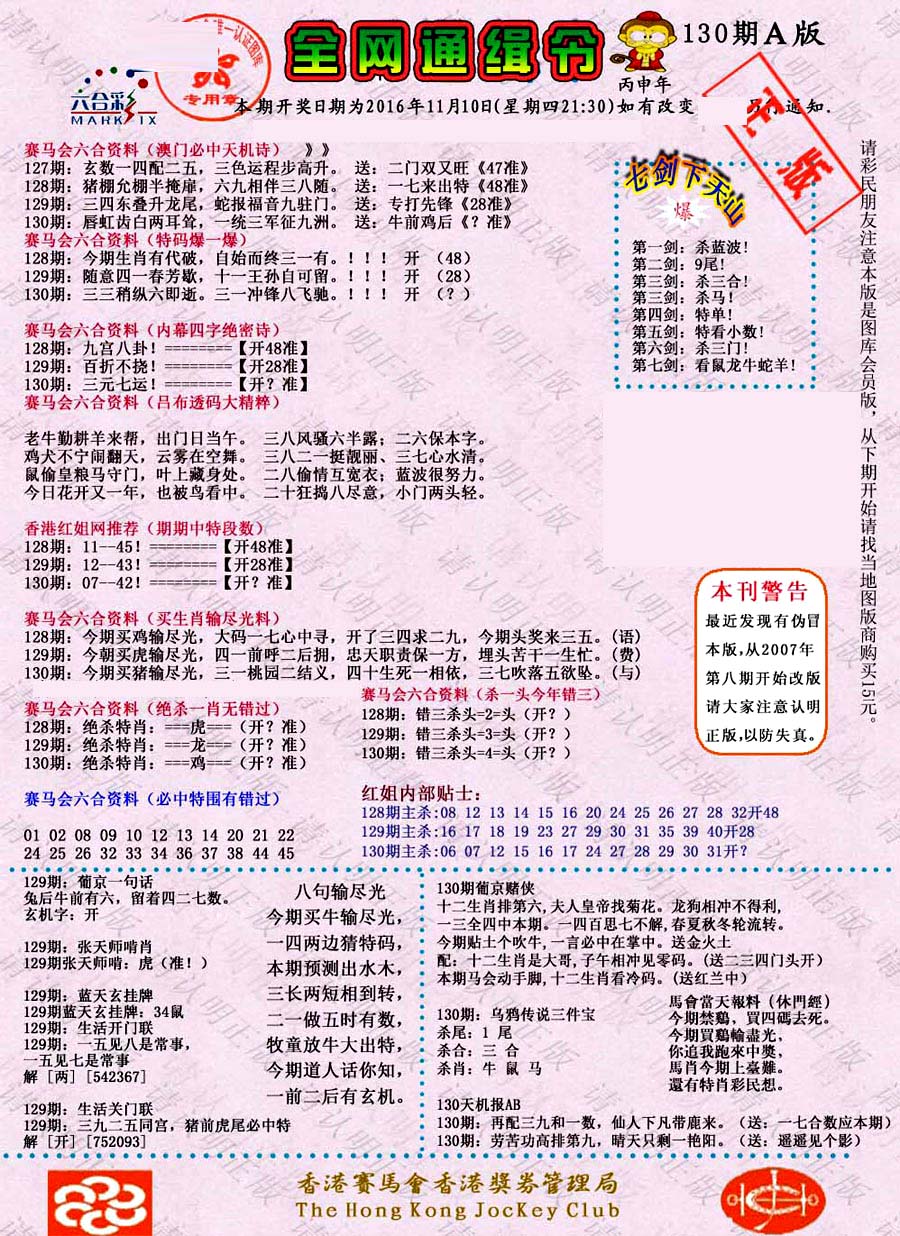 全网通缉令
130期A版
丙申年
专用章
六合彩
MARK SIX
本期开奖日期为2016年11月10日(星期四21:30)如有改变
另行通知.
正版
赛马会六合资料（澳门必中天机诗） 》》
127期：玄数一四配二五，三色运程步高升。 送：二门双又旺《47准》
128期：猪棚允棚半掩扉，六九相伴三八随。 送：一七来出特《48准》
129期：三四东叠升龙尾，蛇报福音九驻门。 送：专打先锋《28准》
130期：唇虹齿白两耳耸，一统三军征九洲。 送：牛前鸡后《？准》
赛马会六合资料（特码爆一爆）
128期：今期生肖有代破，自始而终三一有。！！！ 开 （48）
129期：随意四一春芳歇，十一王孙自可留。！！！ 开 （28）
130期：三三稍纵六即逝。三一冲锋八飞驰。！！！ 开 （？）
七剑下天山
爆
第一剑：杀蓝波!
第二剑：9尾!
第三剑：杀三合!
第三剑：杀马!
第四剑：特单!
第五剑：特看小数!
第六剑：杀三门!
第七剑：看鼠龙牛蛇羊!
请彩民朋友注意本版是图库会员版，从下期开始请找当地图版商购买15元。
赛马会六合资料（内幕四字绝密诗）
128期：九宫八卦！========【开48准】
129期：百折不挠！========【开28准】
130期：三元七运！========【开？准】
赛马会六合资料（吕布透码大精粹）
老牛勤耕羊来帮，出门日当午。 三八风骚六半露；二六保本字。
鸡犬不宁闹翻天，云雾在空舞。 三八二一挺靓丽、三七心水清。
鼠偷皇粮马守门，叶上藏身处。 二八偷情互宽衣；蓝波很努力。
今日花开又一年，也被鸟看中。 二十狂捣八尽意，小门两头轻。
香港红姐网推荐（期期中特段数）
128期：11--45！========【开48准】
129期：12--43！========【开28准】
130期：07--42！========【开？准】
本刊警告
最近发现有伪冒
本版,从2007年
第八期开始改版
请大家注意认明
正版,以防失真。
赛马会六合资料（买生肖输尽光料）
128期：今期买鸡输尽光，大码一七心中寻，开了三四求二九，今期头奖来三五。(语)
129期：今朝买虎输尽光，四一前呼二后拥，忠天职责保一方，埋头苦干一生忙。(费)
130期：今期买猪输尽光，三一桃园二结义，四十生死一相依，三七吹落五欲坠。(与)
赛马会六合资料（绝杀一肖无错过）
128期：绝杀特肖：===虎===（开？准）
129期：绝杀特肖：===龙===（开？准）
130期：绝杀特肖：===鸡===（开？准）
赛马会六合资料（杀一头今年错三）
128期：错三杀头=2=头（开？）
129期：错三杀头=3=头（开？）
130期：错三杀头=4=头（开？）
赛马会六合资料（必中特围有错过）
01 02 08 09 10 12 13 14 20 21 22
24 25 26 32 33 34 36 37 38 44 45
红姐内部贴士：
128期主杀:08 12 13 14 15 16 20 24 25 26 27 28 32开48
129期主杀:16 17 18 19 23 27 29 30 31 35 39 40开28
130期主杀:06 07 12 15 16 17 24 27 28 29 30 31开?
129期：葡京一句话
兔后牛前有六，留着四二七数。
玄机字：开
129期：张天师啃肖
129期张天师啃：虎（准！）
129期：蓝天玄挂牌
129期蓝天玄挂牌：34鼠
129期：生活开门联
129期：一五见八是常事，
一五见七是常事
解［两］[542367]
129期：生活关门联
129期：三九二五同宫，猪前虎尾必中特
解［开］[752093]
八句输尽光
今期买牛输尽光，
一四两边猜特码，
本期预测出水木，
三长两短相到转，
二一做五时有数，
牧童放牛大出特，
今期道人话你知，
一前二后有玄机。
130期葡京赌侠
十二生肖排第六,夫人皇帝找菊花。龙狗相冲不得利,
一三全四中本期。一四百思七不解,春夏秋冬轮流转。
今期贴土个吹牛,一言必中在掌中。送金火土
配：十二生肖是大哥,子午相冲见零码。(送二三四门头开)
本期马会动手脚,十二生肖看冷码。(送红兰中)
130期：乌鸦传说三件宝
杀尾：1 尾
杀合：三 合
杀肖：牛 鼠 马
馬會當天報料（休門經）
今期禁鷄、買四碼去死。
今期買鷄輸盡光，
你追我跑來中獎，
馬肖今期上臺難。
還有特肖彩民想。
130天机报AB
130期：再配三九和一数，仙人下凡带鹿来。（送：一七合数应本期）
130期：劳苦功高排第九，晴天只剩一艳阳。（送：遥遥见个影）
香港賽馬會香港獎券管理局
The Hong Kong JocKey Club